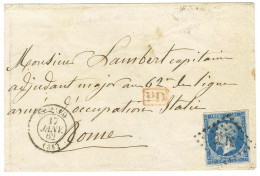 Monsieur Lambert capitaine
adjudant major au 62e de ligne
armée d'occupation Italie
Rome
PD
17
JANV.
62